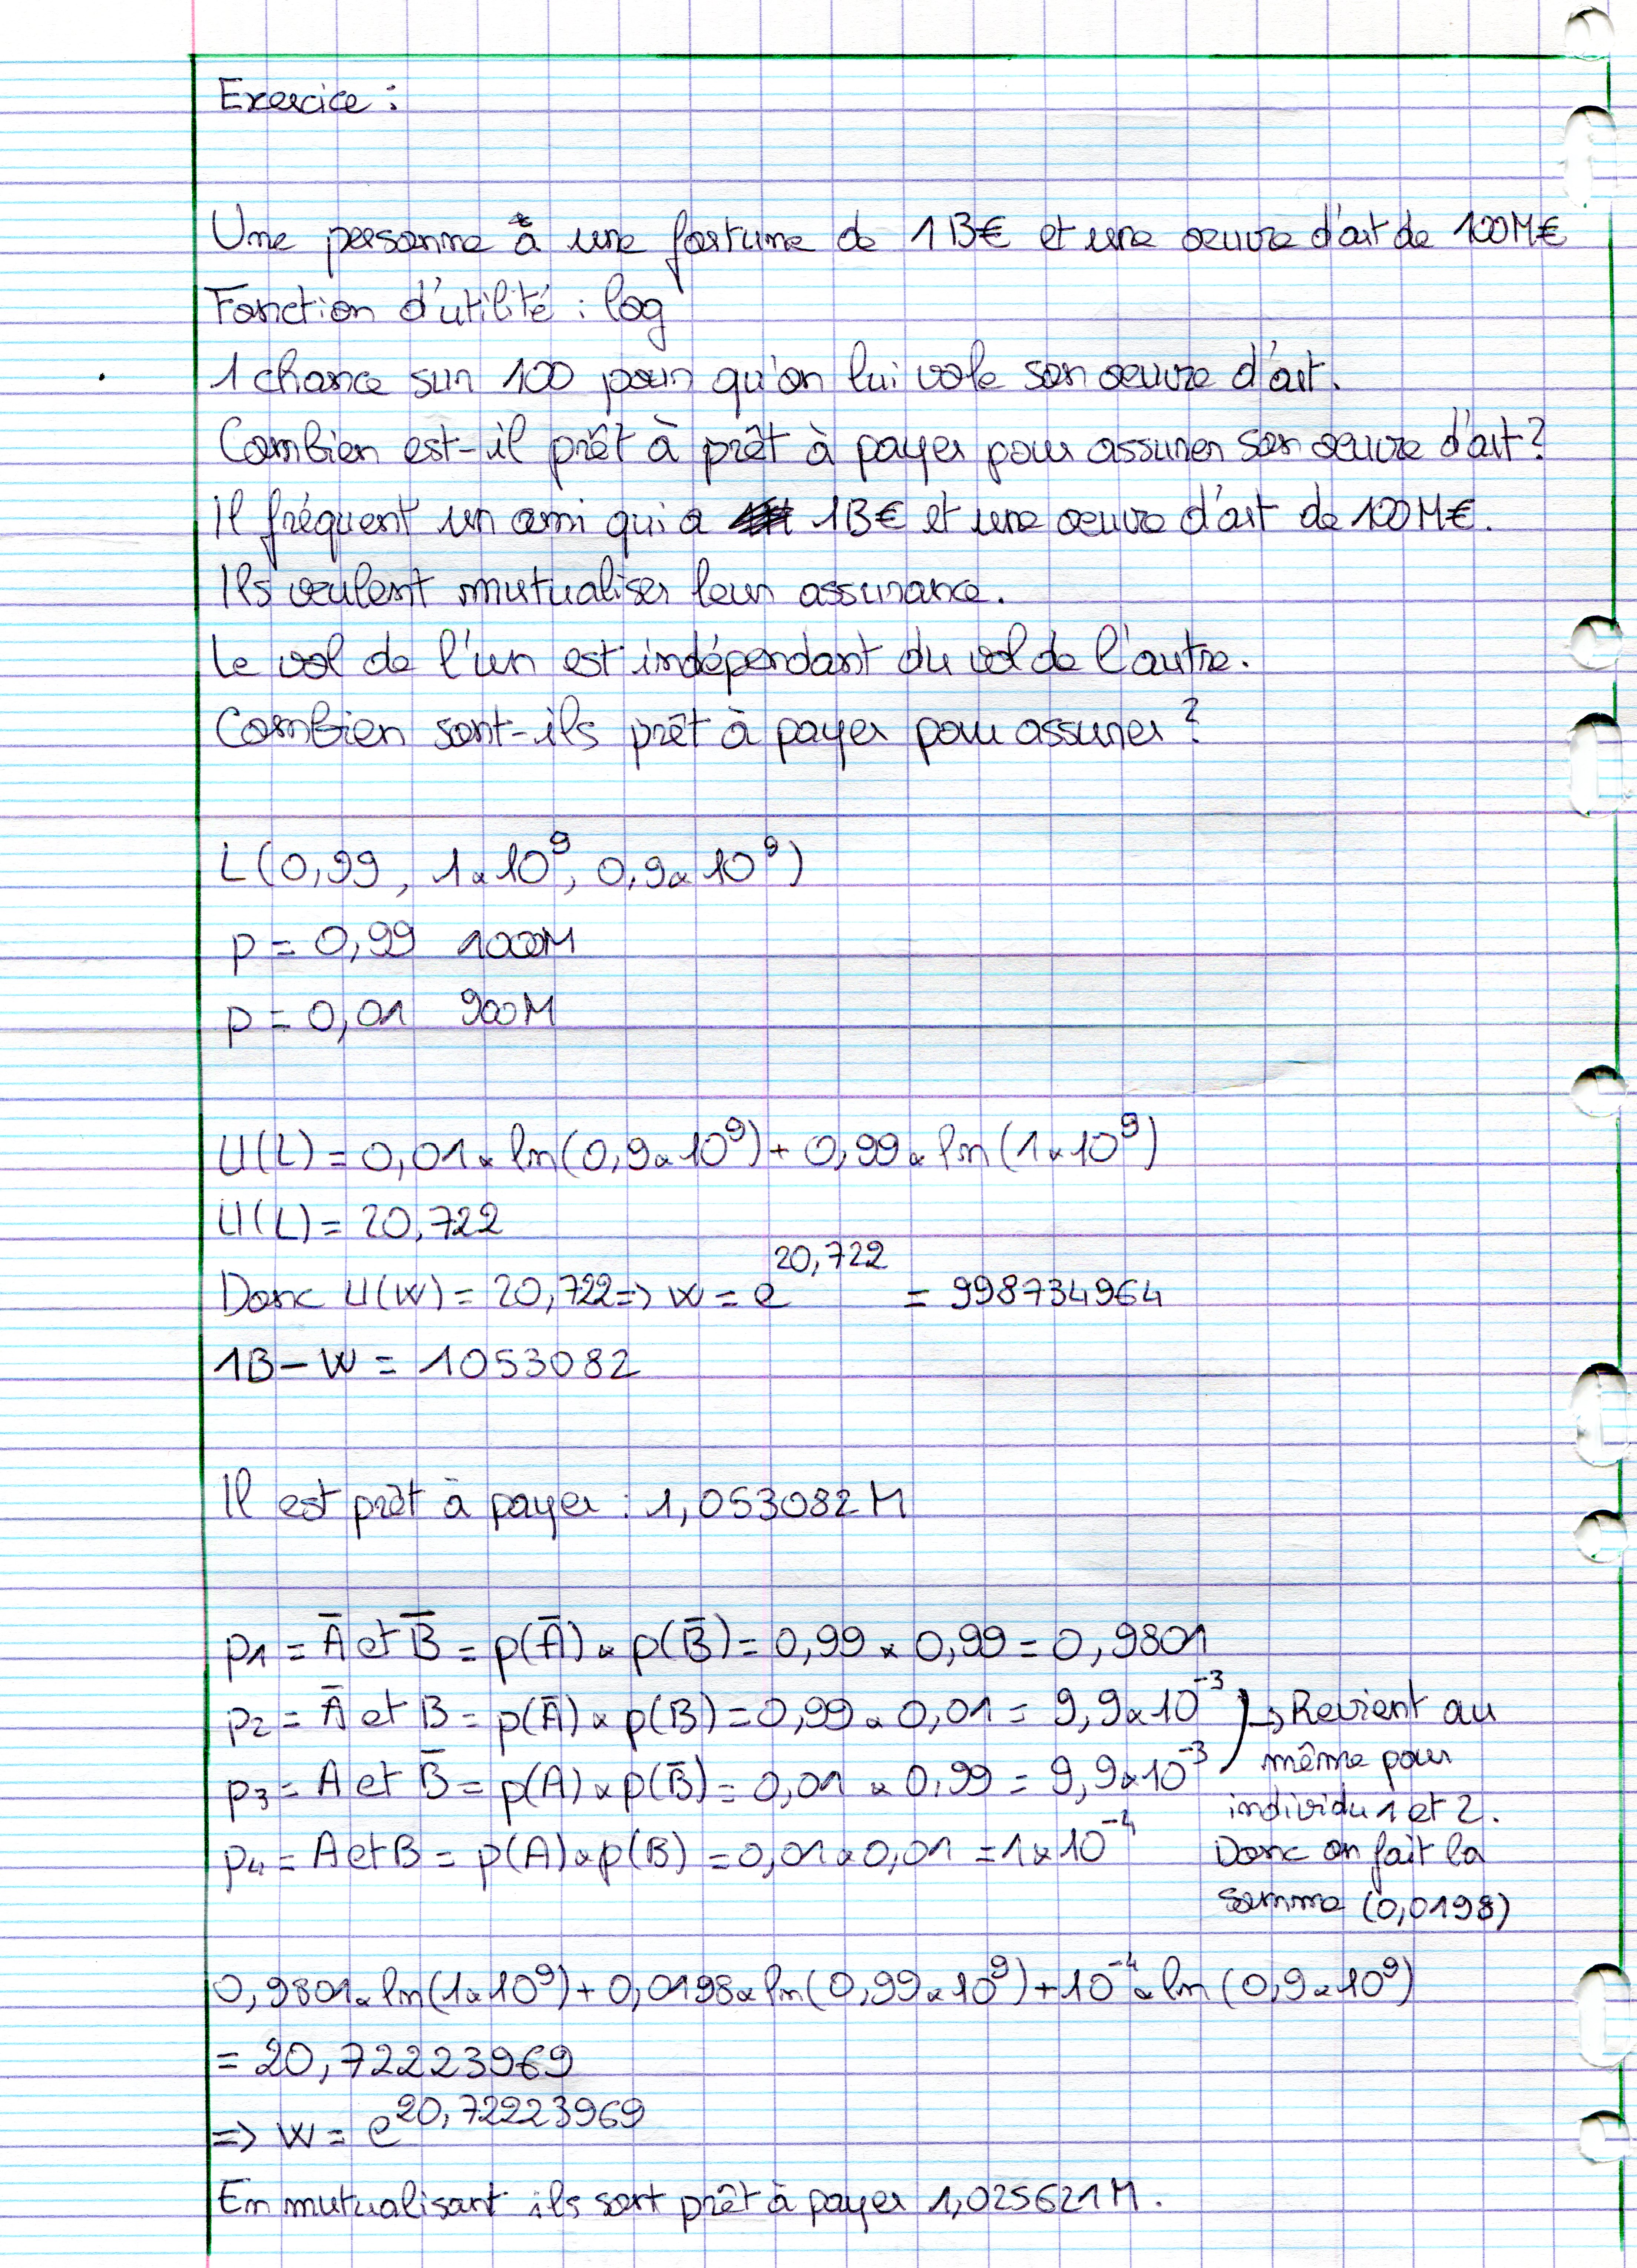 Exercice :
Une personne a une fortune de 1B€ et une oeuvre d'art de 100M€
Fonction d'utilité : log
1 chance sur 100 pour qu'on lui vole son oeuvre d'art.
Combien est-il prêt à prêt à payer pour assurer son oeuvre d'art ?
Il fréquent un ami qui a 1B€ et une oeuvre d'art de 100M€.
Ils veulent mutualiser leur assurance.
Le vol de l'un est indépendant du vol de l'autre.
Combien sont-ils prêt à payer pour assurer ?
L(0,99, 1x10⁹, 0,9x10⁹)
p = 0,99 1000M
p = 0,01 900M
U(L) = 0,01 x ln(0,9x10⁹) + 0,99 x ln(1x10⁹)
U(L) = 20,722
Donc U(W) = 20,722 => W = e^20,722 = 998734964
1B - W = 1053082
Il est prêt à payer : 1,053082M
p1 = A̅ et B̅ = p(A̅) x p(B̅) = 0,99 x 0,99 = 0,9801
p2 = A̅ et B = p(A̅) x p(B) = 0,99 x 0,01 = 9,9x10⁻³ ) → Revient au
p3 = A et B̅ = p(A) x p(B̅) = 0,01 x 0,99 = 9,9x10⁻³ même pour
individu 1 et 2.
p4 = A et B = p(A) x p(B) = 0,01 x 0,01 = 1x10⁻⁴ Donc on fait la
somme (0,0198)
0,9801x ln(1x10⁹) + 0,0198x ln(0,99x10⁹) + 10⁻⁴x ln(0,9x10⁹)
= 20,72223969
=> W = e^20,72223969
En mutualisant ils sont prêt à payer 1,025621M.